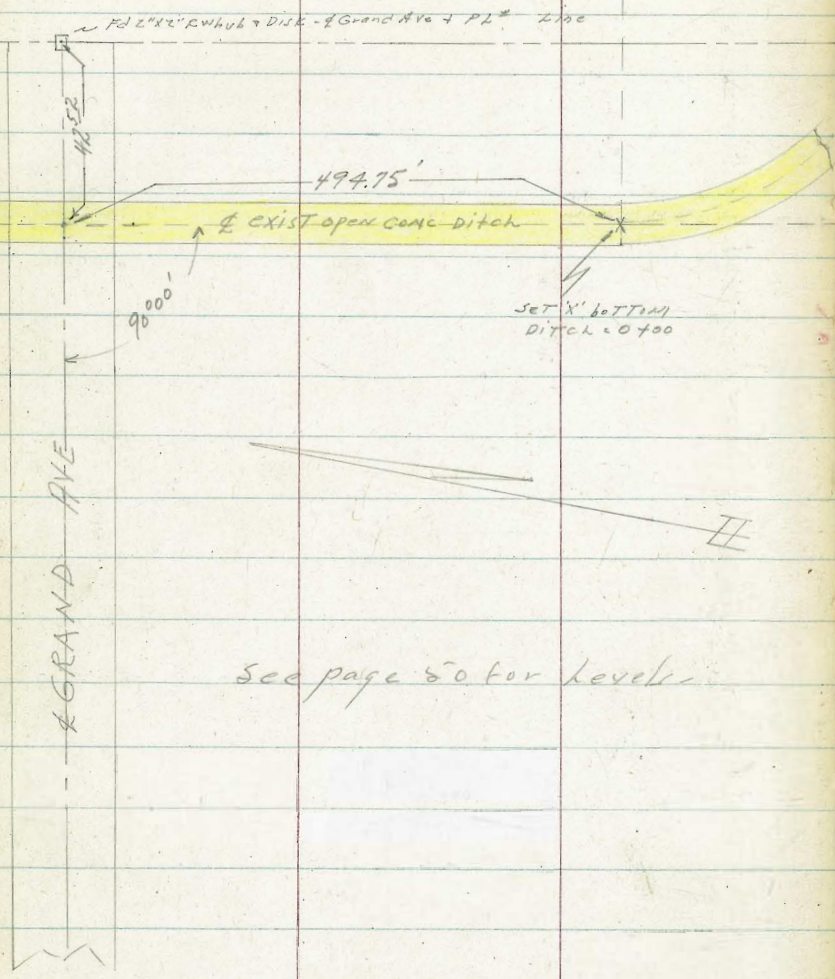 Fd 2"x2" Rwhub & Disk - ℄ Grand Ave & PL Line
42 52
494.75'
℄ EXIST OPEN CONC Ditch
90°00'
SET 'X' bOTTOM
DITCH = 0+00
℄ GRAND AVE
See page 50 for Levels-